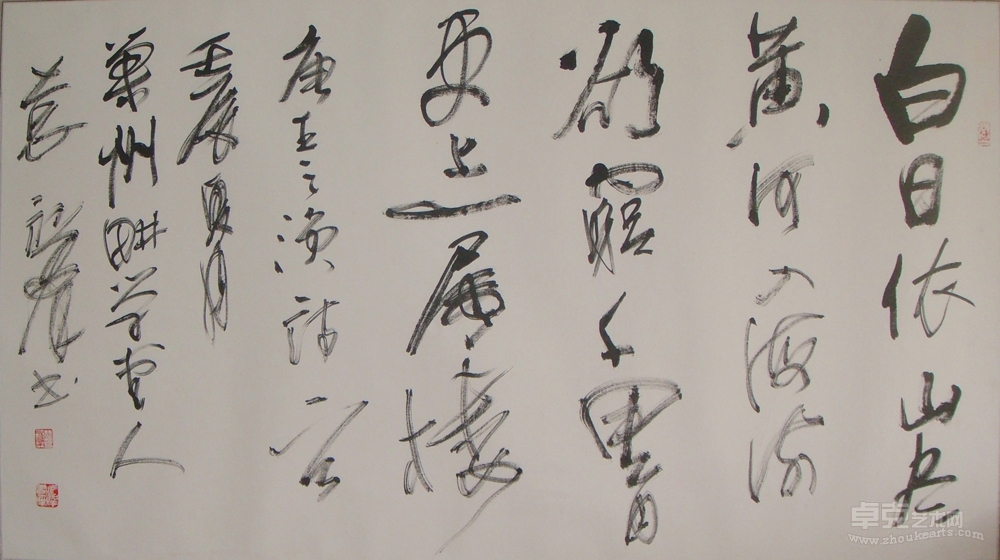 白日依山尽
黄河入海流
欲穷千里目
更上一层楼
唐王之涣诗一首
壬辰夏月
兰州耕学堂人
书
卓克艺术网
www.zhoukearts.com